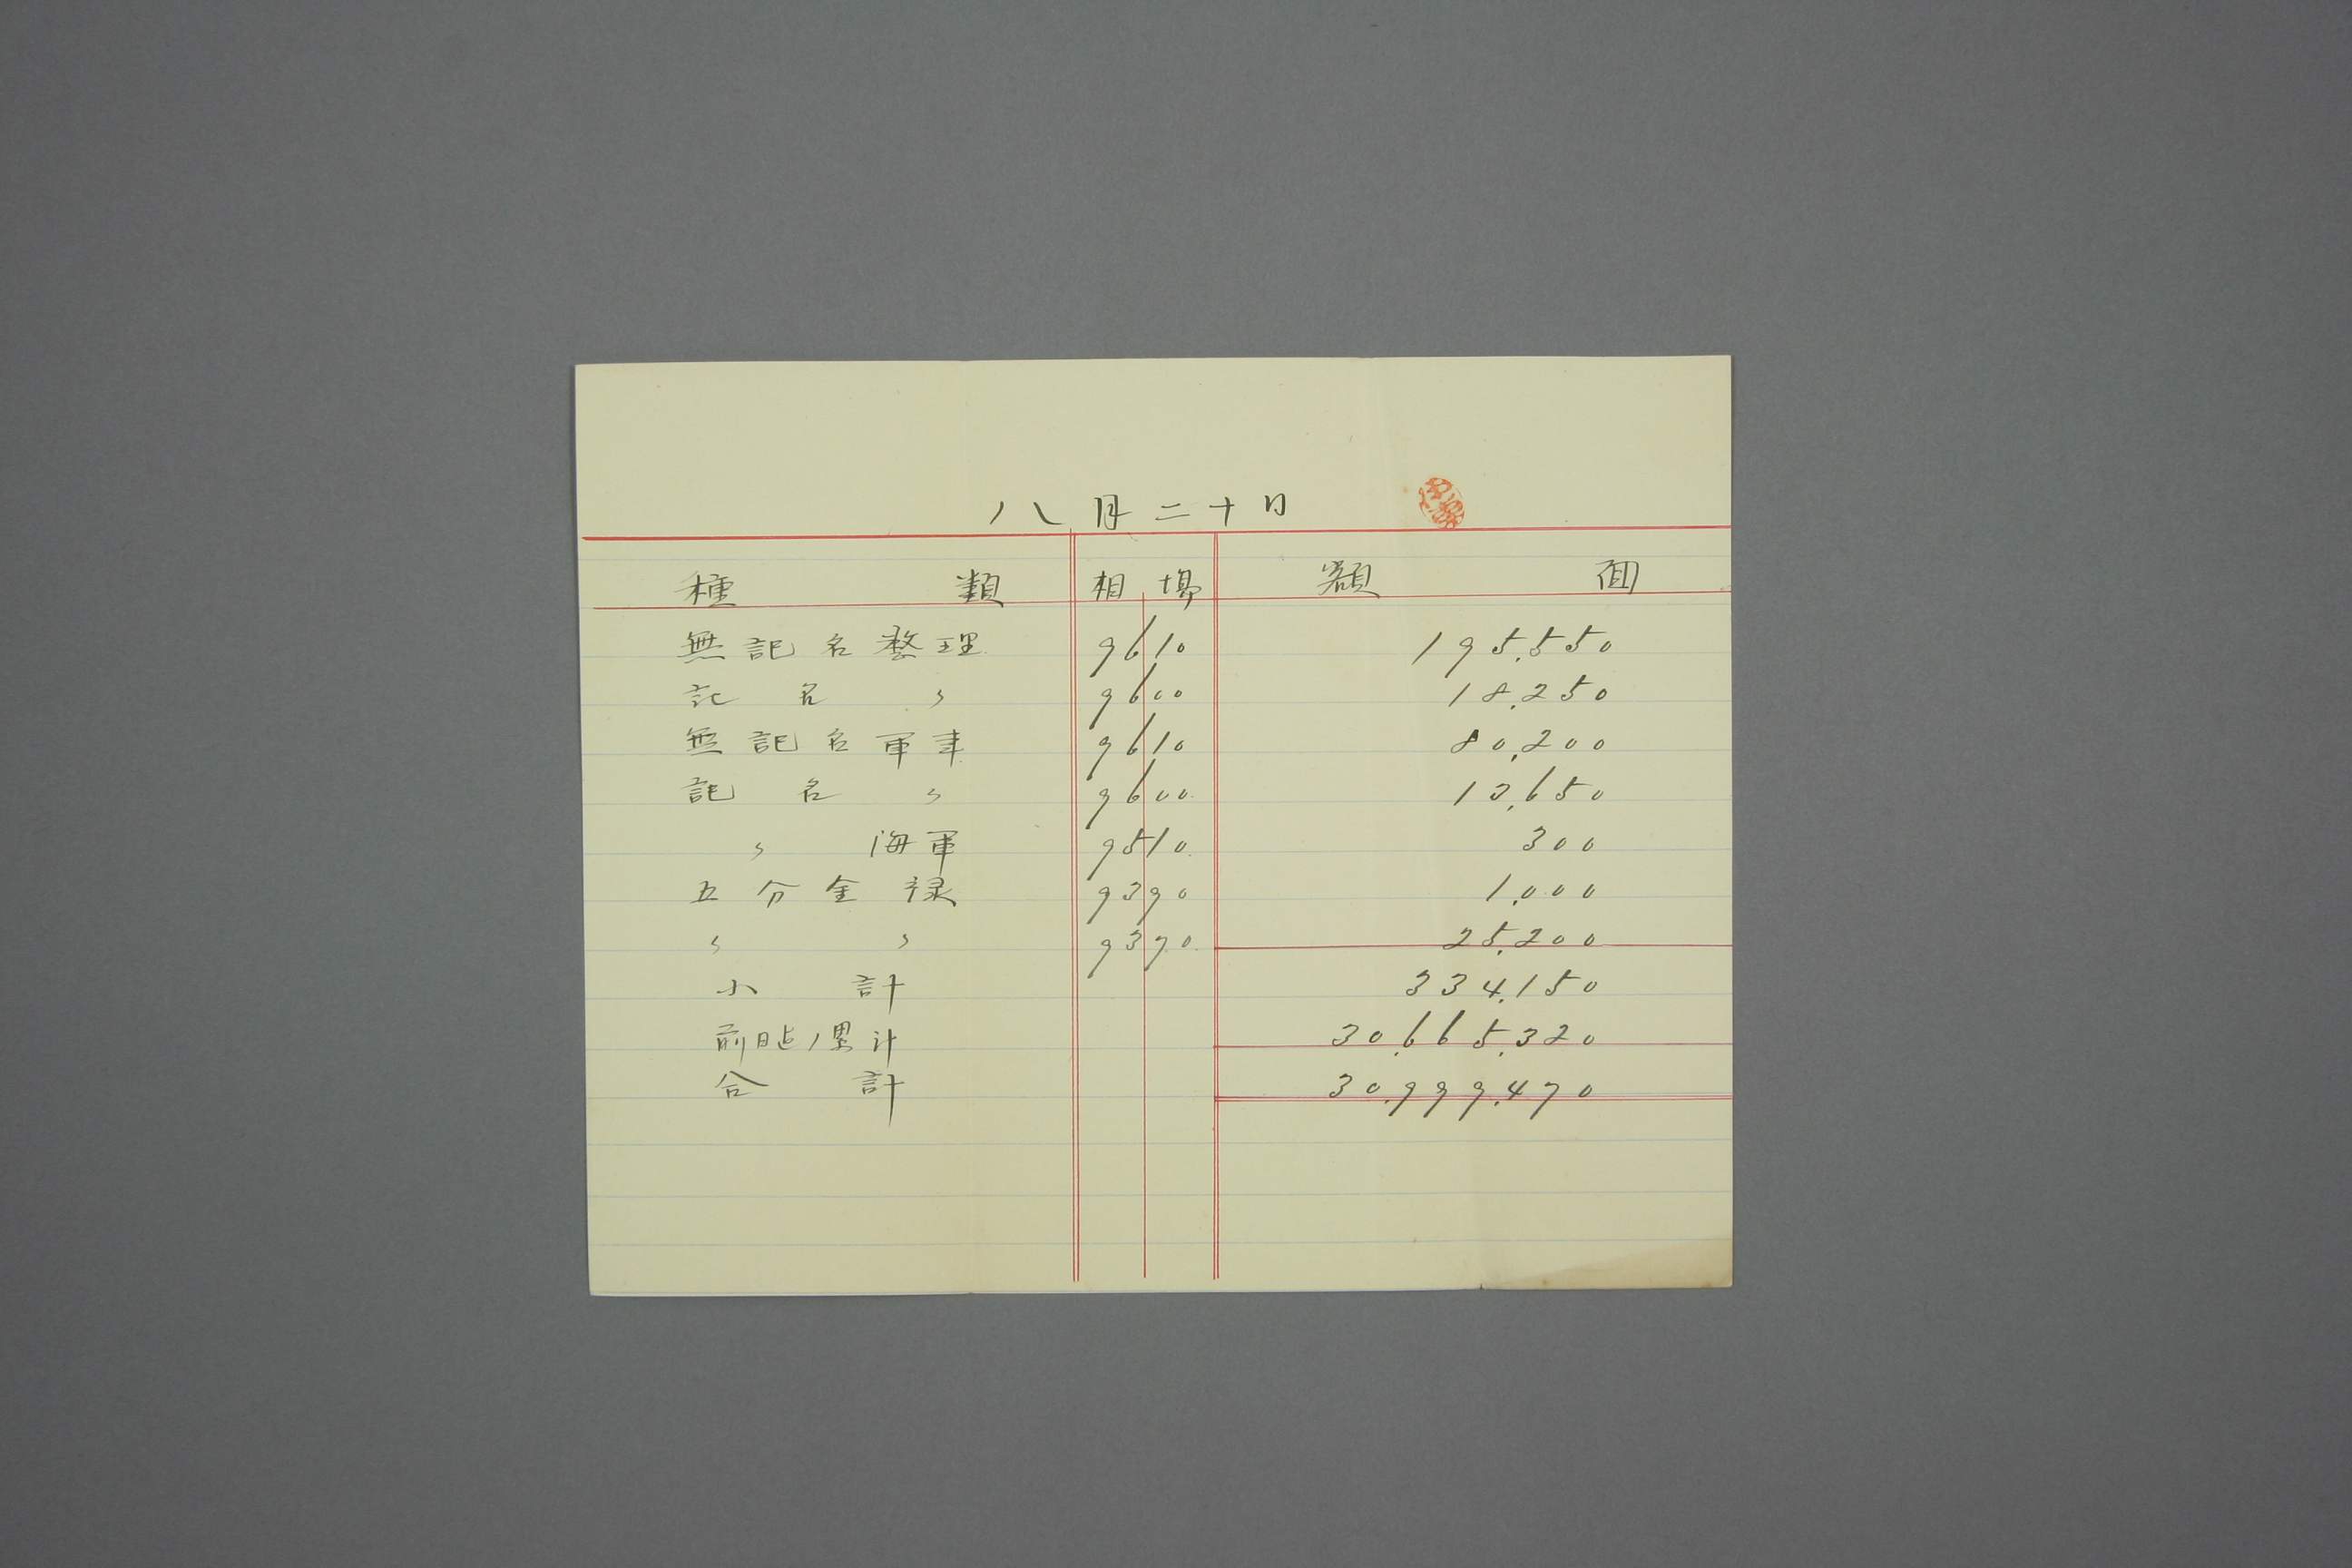 八月二十日
種類 相場 額面
無記名整理 9610 195,550
記名〃 9600 18,250
無記名軍事 9610 80,200
記名〃 9600 13,650
〃海軍 9510 300
五分金禄 9390 1,000
〃〃 9370 25,200
小計 334,150
前日迄ノ累計 30,665,320
合計 30,999,470